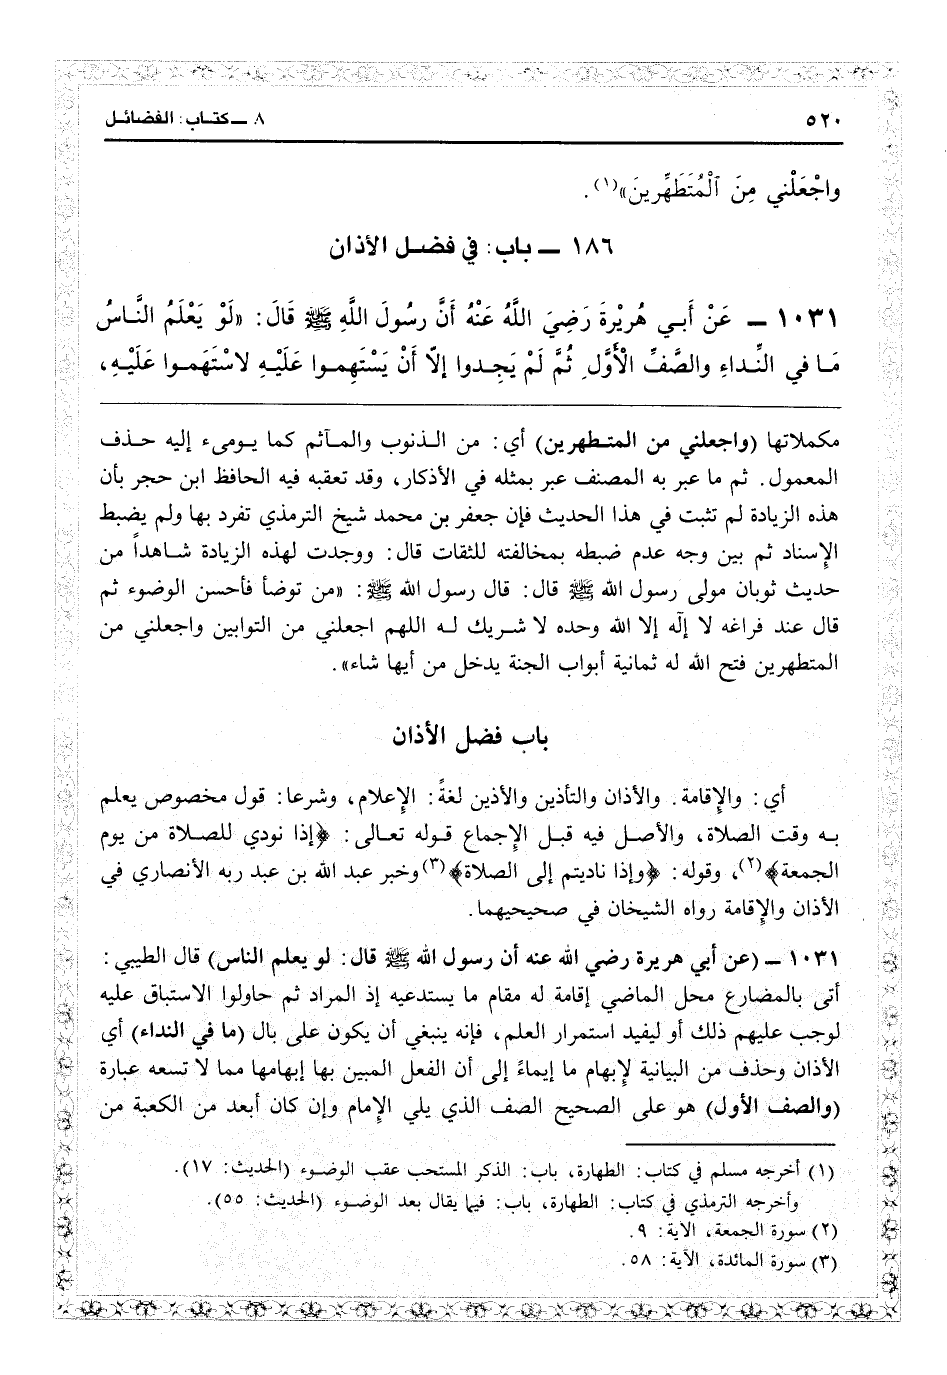 ٥٢٠ ٨ ــ كتـاب: الفضائـل
واجْعَلْني مِنَ ٱلْمُتَطَهِّرينَ»(١).
١٨٦ ــ بـاب: في فضـل الأذان
١٠٣١ ــ عَنْ أَبـي هُرَيْرةَ رَضِيَ اللَّهُ عَنْهُ أَنَّ رسُولَ اللَّهِ ﷺ قَالَ: «لَوْ يَعْلَمُ النَّاسُ
مَـا في النِّـداءِ والصَّفِّ الْأَوَّلِ ثُمَّ لَمْ يَجِـدوا إلاّ أَنْ يَسْتَهِمـوا عَلَيْـهِ لاسْتَهَمـوا عَلَيْـهِ،
مكملاتها (واجعلني من المتـطهرين) أي: من الـذنوب والمـآثم كما يـومىء إليه حـذف
المعمول. ثم ما عبر به المصنف عبر بمثله في الأذكار، وقد تعقبه فيه الحافظ ابن حجر بأن
هذه الزيادة لم تثبت في هذا الحديث فإن جعفر بن محمد شيخ الترمذي تفرد بها ولم يضبط
الإسناد ثم بين وجه عدم ضبطه بمخالفته للثقات قال: ووجدت لهذه الزيادة شـاهداً من
حديث ثوبان مولى رسول الله ﷺ قال: قال رسول الله ﷺ: «من توضأ فأحسن الوضوء ثم
قال عند فراغه لا إلٓه إلا الله وحده لا شـريك لـه اللهم اجعلني من التوابين واجعلني من
المتطهرين فتح الله له ثمانية أبواب الجنة يدخل من أيها شاء».
باب فضل الأذان
أي: والإقامة. والأذان والتأذين والأذين لغةً: الإعلام، وشرعا: قول مخصوص يعلم
بـه وقت الصلاة، والأصـل فيه قبـل الإجماع قـوله تعـالى: ﴿إذا نودي للصـلاة من يوم
الجمعة﴾(٢)، وقوله: ﴿وإذا ناديتم إلى الصلاة﴾(٣) وخبر عبد الله بن عبد ربه الأنصاري في
الأذان والإقامة رواه الشيخان في صحيحيهما.
١٠٣١ ــ (عن أبي هريرة رضي الله عنه أن رسول الله ﷺ قال: لو يعلم الناس) قال الطيبي:
أتى بالمضارع محل الماضي إقامة له مقام ما يستدعيه إذ المراد ثم حاولوا الاستباق عليه
لوجب عليهم ذلك أو ليفيد استمرار العلم، فإنه ينبغي أن يكون على بال (ما في النداء) أي
الأذان وحذف من البيانية لإبهام ما إيماءً إلى أن الفعل المبين بها إبهامها مما لا تسعه عبارة
(والصف الأول) هو على الصحيح الصف الذي يلي الإمام وإن كان أبعد من الكعبة من
(١) أخرجه مسلم في كتاب: الطهارة، باب: الذكر المستحب عقب الوضوء (الحديث: ١٧).
وأخرجه الترمذي في كتاب: الطهارة، باب: فيما يقال بعد الوضـوء (الحديث: ٥٥).
(٢) سورة الجمعة، الآية: ٩.
(٣) سورة المائدة، الآية: ٥٨.